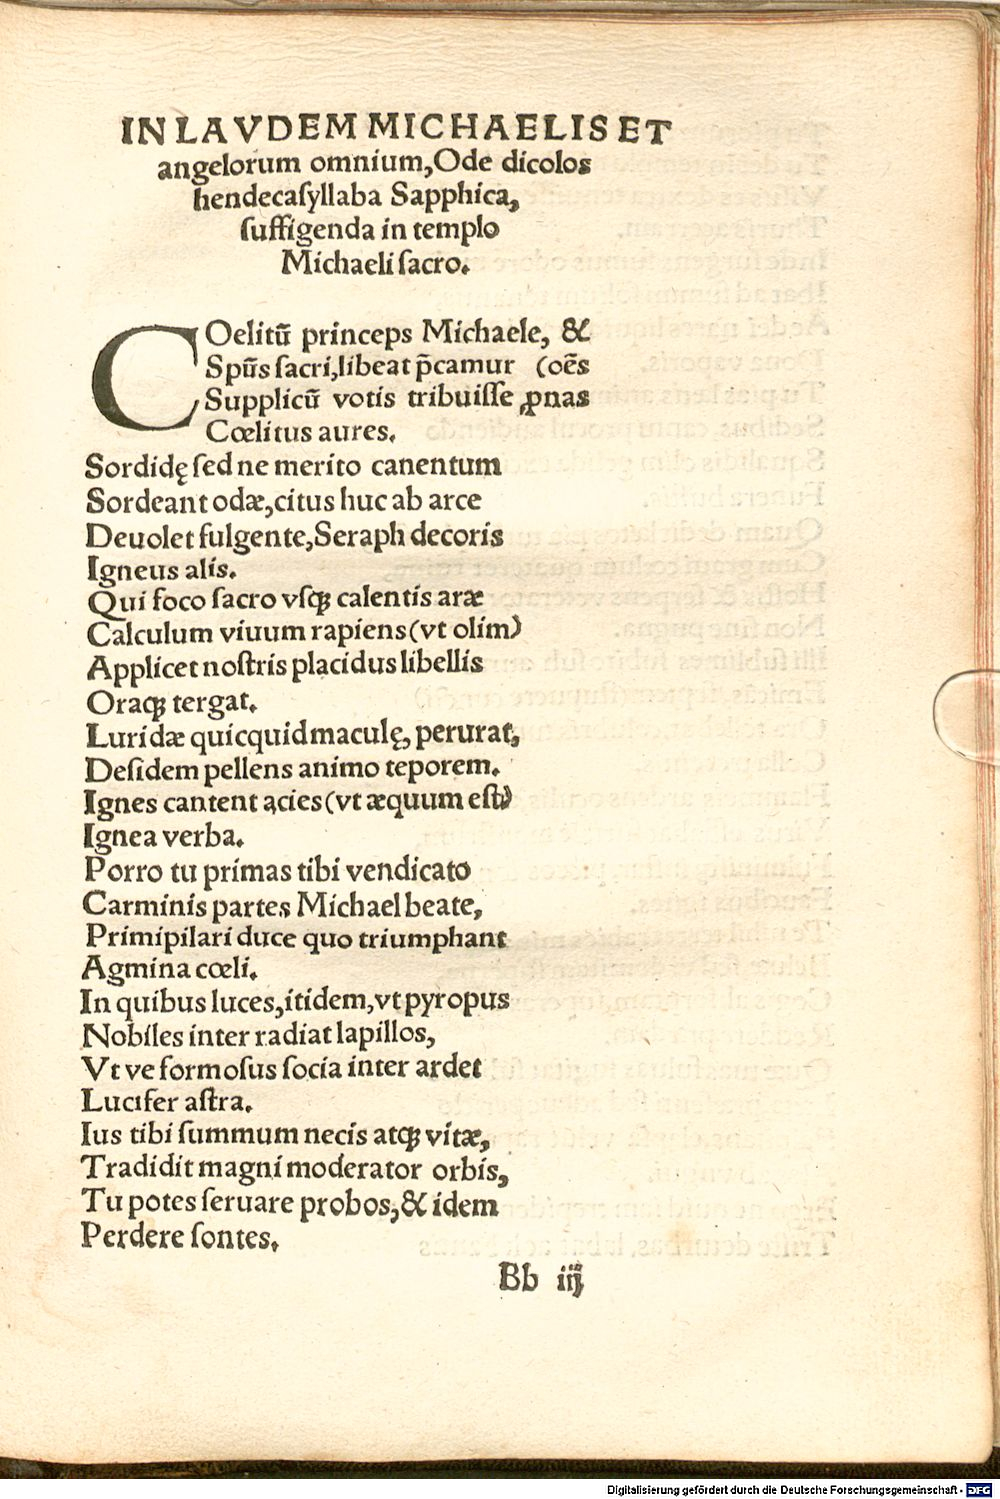 IN LAVDEM MICHAELIS ET
angelorum omnium, Ode dicolos
hendecaſyllaba Sapphica,
ſuffigenda in templo
Michaeli ſacro.
COelitū princeps Michaele, &
Spūs ſacri, libeat p̄camur (oēs
Supplicū votis tribuiſſe ꝓnas
Cœlitus aures.
Sordidę ſed ne merito canentum
Sordeant odæ, citus huc ab arce
Deuolet fulgente, Seraph decoris
Igneus alis.
Qui foco ſacro vſqꝫ calentis aræ
Calculum viuum rapiens (vt olim)
Applicet noſtris placidus libellis
Oraqꝫ tergat.
Luridæ quicquid maculę, perurat,
Deſidem pellens animo teporem.
Ignes cantent acies (vt æquum eſt)
Ignea verba.
Porro tu primas tibi vendicato
Carminis partes Michael beate,
Primipilari duce quo triumphant
Agmina cœli.
In quibus luces, itidem, vt pyropus
Nobiles inter radiat lapillos,
Vt ve formoſus ſocia inter ardet
Lucifer aſtra.
Ius tibi ſummum necis atqꝫ vitæ,
Tradidit magni moderator orbis,
Tu potes ſeruare probos, & idem
Perdere ſontes.
Bb iij
Digitalisierung gefördert durch die Deutsche Forschungsgemeinschaft - DFG